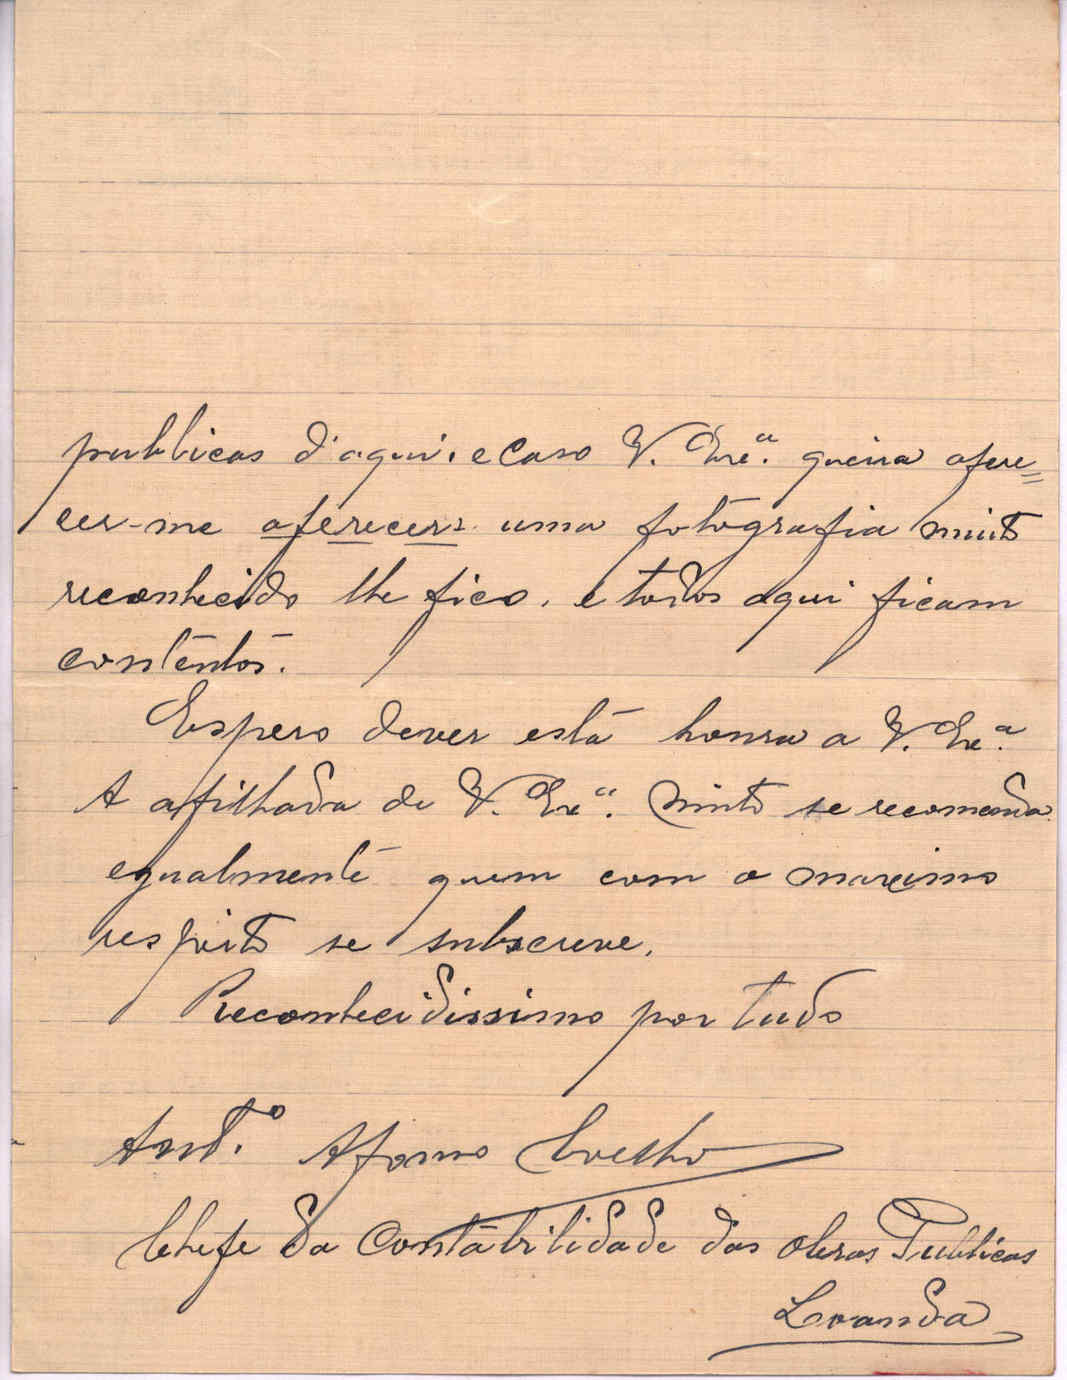 publicas d'aqui. e caso V. Exª. queira ofere=
cer-me oferecer: uma fotografia muito
reconhecido lhe fico. e todos aqui ficam
contentos.
Espero dever está honra a V. Exª.
A afilhada de V. Exª. Muito se recomenda
egualmente quem com o maximo
respeito se subscreve.
Reconhecidissimo por tudo
Antº. Afonso Coelho
Chefe da Contabilidade das Obras Publicas
Loanda